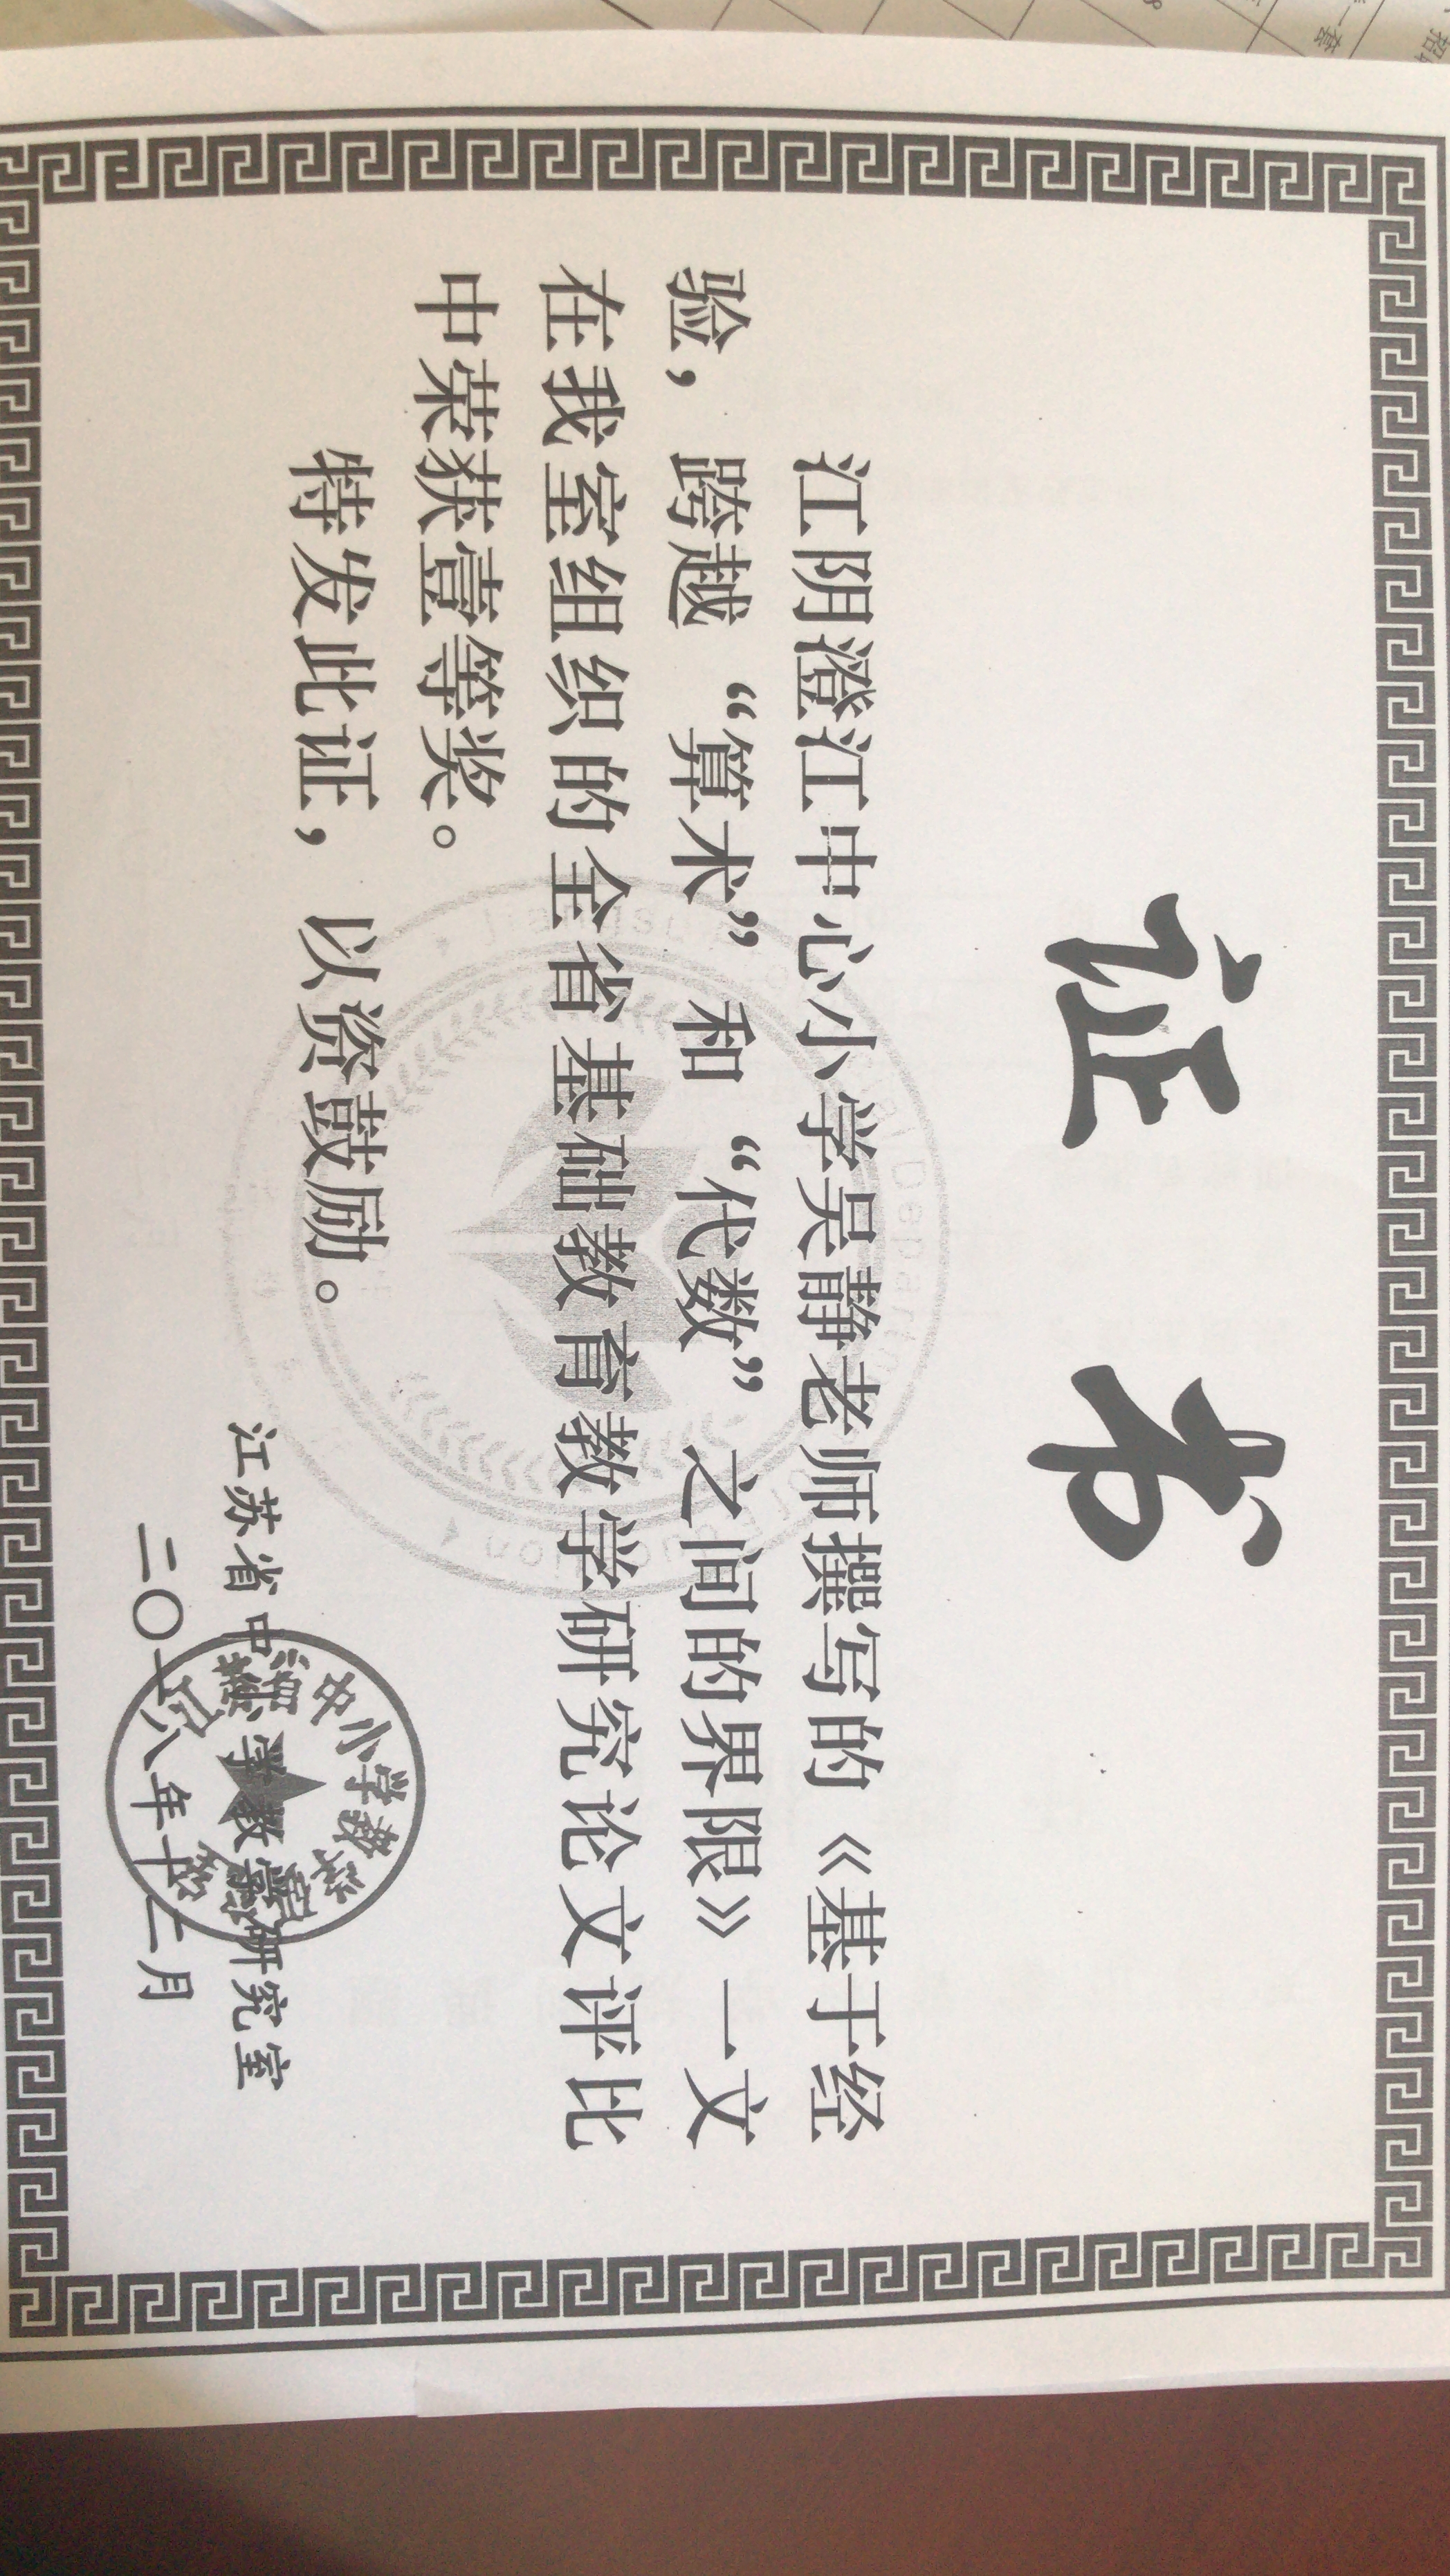 证 书
江阴澄江中心小学吴静老师撰写的《基于经
验，跨越“算术”和“代数”之间的界限》一文
在我室组织的全省基础教育教学研究论文评比
中荣获壹等奖。
特发此证，以资鼓励。
江苏省中小学教学研究室
二〇一八年十二月
中小学教学